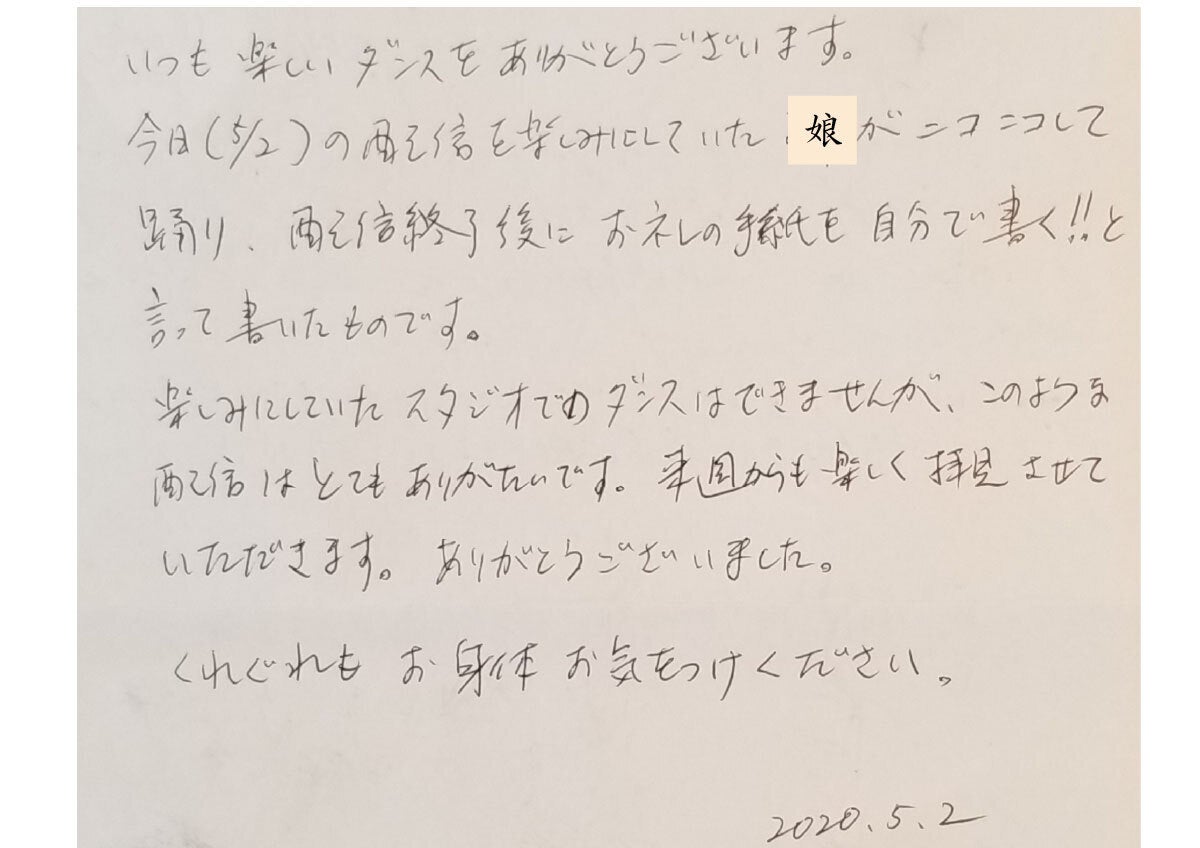 いつも楽しいダンスをありがとうございます。
今日(5/2)の配信を楽しみにしていた娘がニコニコして
踊り、配信終了後にお礼の手紙を自分で書く!!と
言って書いたものです。
楽しみにしていたスタジオでのダンスはできませんが、このような
配信はとてもありがたいです。来週からも楽しく拝見させて
いただきます。ありがとうございました。
くれぐれもお身体お気をつけください。
2020.5.2